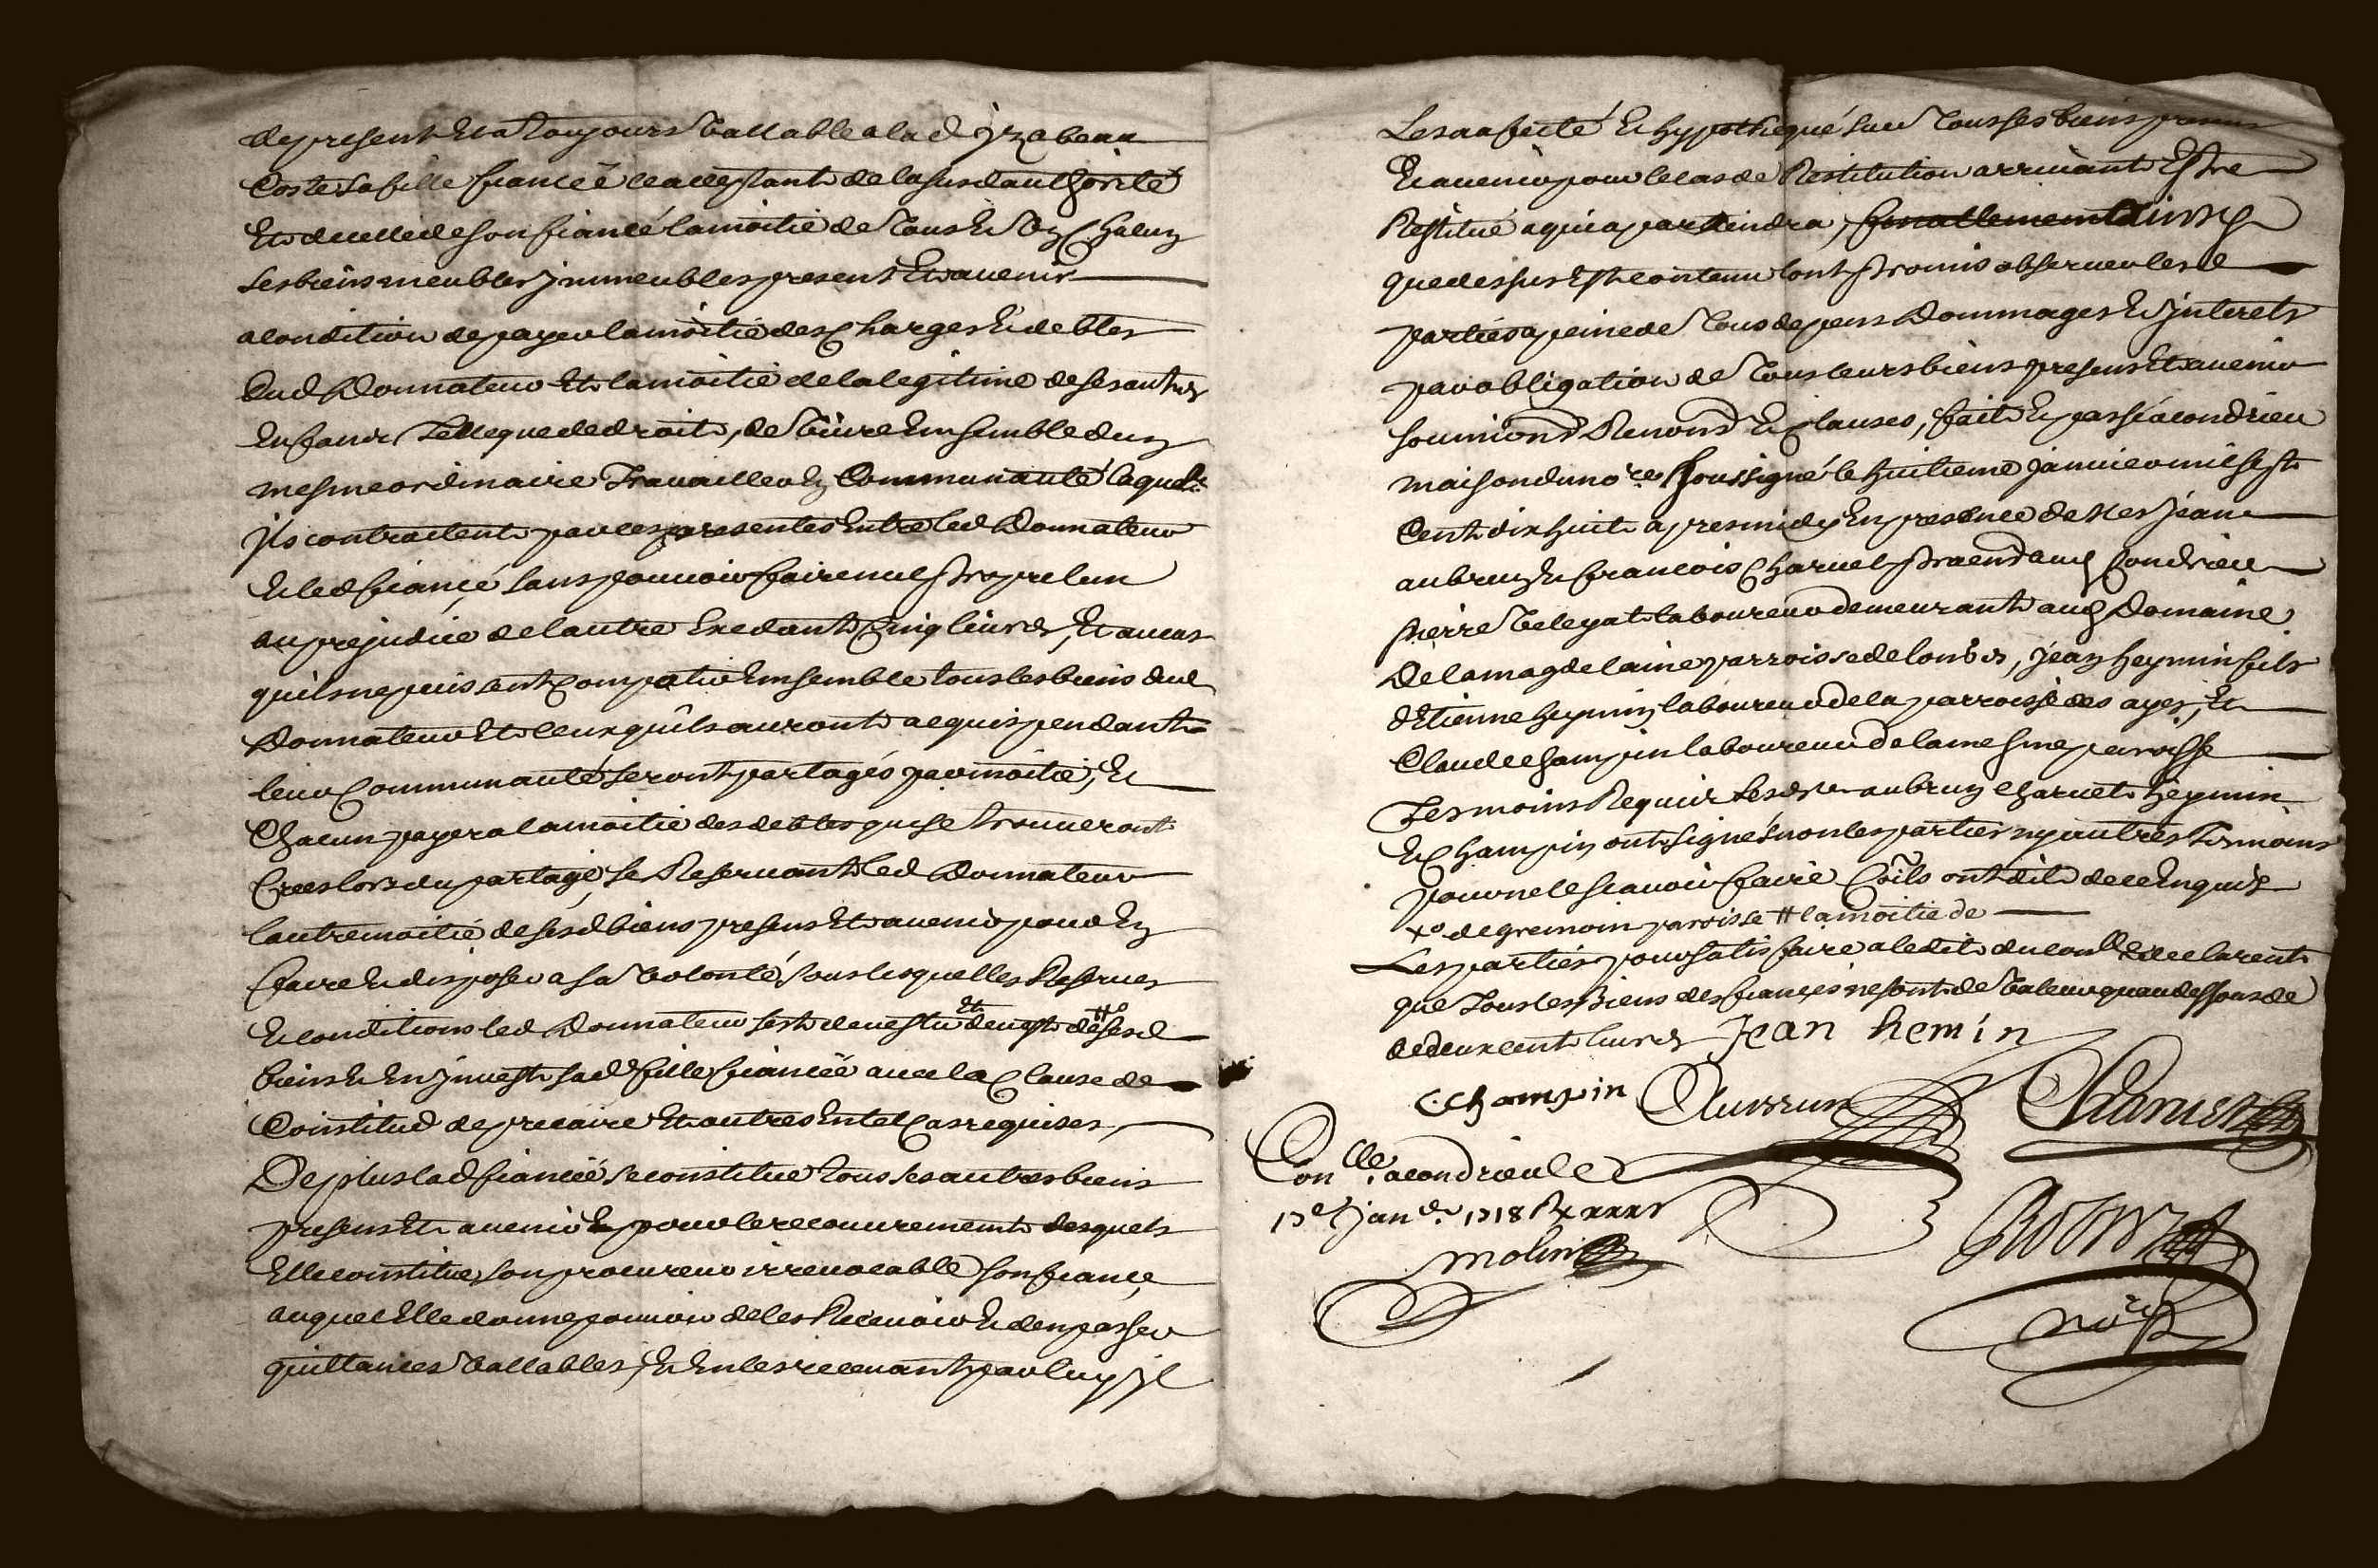 de present et a toujours vallable a lad yzabeau
Coste sa fille fiancéé et acceptant de la susd authorité
et de celle de son fiancé la moitié de tous et vn chacun
ses biens meubles jmmeubles present et avenir
a condition de payer la moitié des charges et debtes
dud Donnateur et la moitié de la legitime de ses autres
enfans telle que de droit, de vivre ensemble dun
mesme ordinaire travailler en communauté laquelle
jls contractent par ces presentes entre led Donnateur
et led fiancé sans pouvoir faire nul propre lun
au prejudice de lautre exedant cinq livres, et au cas
quils ne puissent compatir ensemble tous les biens dud
Donnateur et ceux quils auront acquis pendant
leur communauté seront partagés par moitié, et
chacun payera la moitié des debtes qui se trouveront
créés lors du partage, se reservant led Donnateur
lautre moitié de sesd biens presens et avenir pour en
faire et disposer a sa volonté, sous lesquelles reserves
et conditions led Donnateur sest devestu et devest de # sesd
biens et en jnvest sad fille fiancéé avec la clause de
Constitud de precaire et autres en tel cas requises
De plus lad fiancéé se constitue tous ses autres biens
presens et avenir et pour le recouvrement desquels
elle constitue son procureur irrevocable son fiancé
auquel elle donne pouvoir de les recevoir et den passer
quittances vallables, et en les recevant par luy jl
Les a afecté et hypothequé sur tous ses biens presens
et avenir pour le cas de restitution arrivant estre
restitué a qui apartiendra, finallement
que dessus est contenu lont promis observer lesd
parties a peine de tous depens Dommages et jnterets
par obligation de tous leurs biens presens et avenir
soumions renons et clauses, fait et passé a condrieu
maison du nore soussigné le huitieme janvier mil sept
cent dix huit apres midy en presence de sies jean
aubrun et francois Charvet praens aud Condrieu
pierre velegat laboureur demeurant aud Domaine
de la magdelaine parroisse de , jean heymin fils
dEtienne heymin laboureur de la parroisse des ayes, et
Claude champin laboureur de la mesme paroisse
tesmoins requis lesd srs aubrun charvet heymin
et champin ont signés non les parties ny autres tesmoins
pour ne le scavoir faire coils ont dit de ce enquis
xo de gremoin paroisse # la moitié de
Les parties pour satisfaire a ledit du conlle declarent
que tous les biens des fiancés ne sont de valeur quau dessous de
de deux cent livres Jean hemin
C champin Auvrun Charvet
Conlle a condrieu le
17e janer 1718 R xxxxs
molin
nore